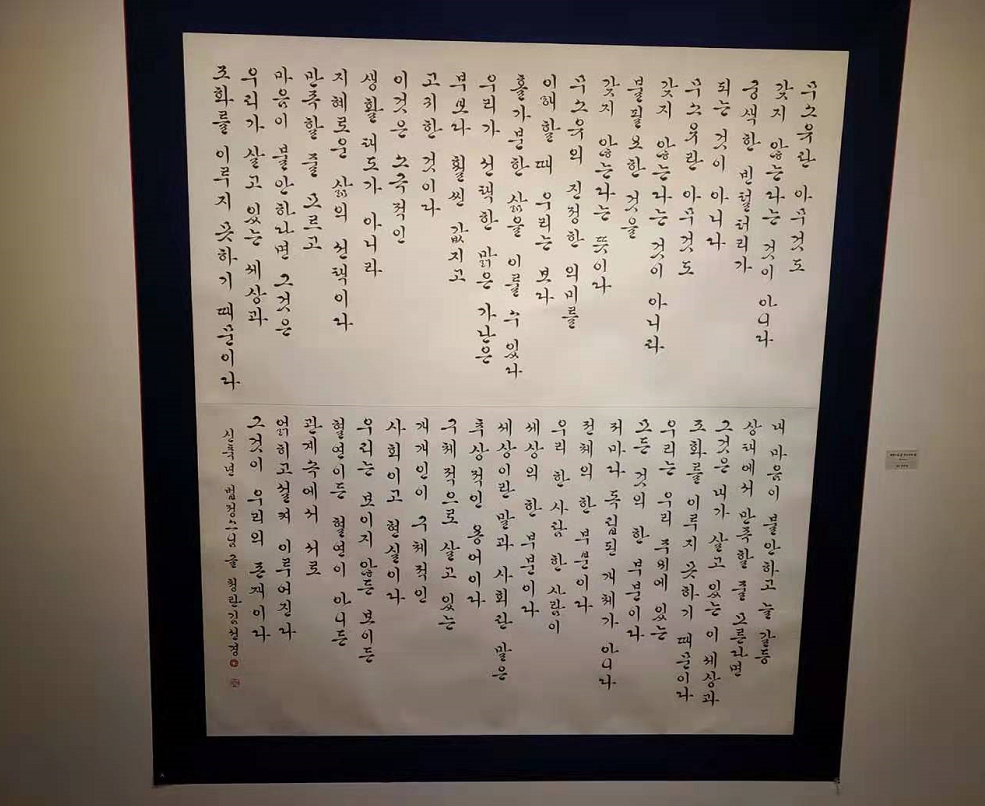 무소유란 아무것도
갖지 않는다는 것이 아니다
궁색한 빈털터리가
되는 것이 아니다
무소유란 아무것도
갖지 않는다는 것이 아니라
불필요한 것을
갖지 않는다는 뜻이다
무소유의 진정한 의미를
이해할 때 우리는 보다
홀가분한 삶을 이룰 수 있다
우리가 선택한 맑은 가난은
부보다 훨씬 값지고
고귀한 것이다
이것은 소극적인
생활 태도가 아니라
지혜로운 삶의 선택이다
만족할 줄 모르고
마음이 불안하다면 그것은
우리가 살고 있는 세상과
조화를 이루지 못하기 때문이다
내 마음이 불안하고 늘 갈등
상태에서 만족할 줄 모른다면
그것은 내가 살고 있는 이 세상과
조화를 이루지 못하기 때문이다
우리는 우리 주위에 있는
모든 것의 한 부분이다
저마다 독립된 개체가 아니다
전체의 한 부분이다
우리 한 사람 한 사람이
세상의 한 부분이다
세상이란 말과 사회란 말은
추상적인 용어이다
구체적으로 살고 있는
개개인이 구체적인
사회이고 현실이다
우리는 보이지 않든 보이든
혈연이든 혈연이 아니든
관계 속에서 서로
얽히고설켜 이루어진다
그것이 우리의 존재이다
신축년 법정스님 글